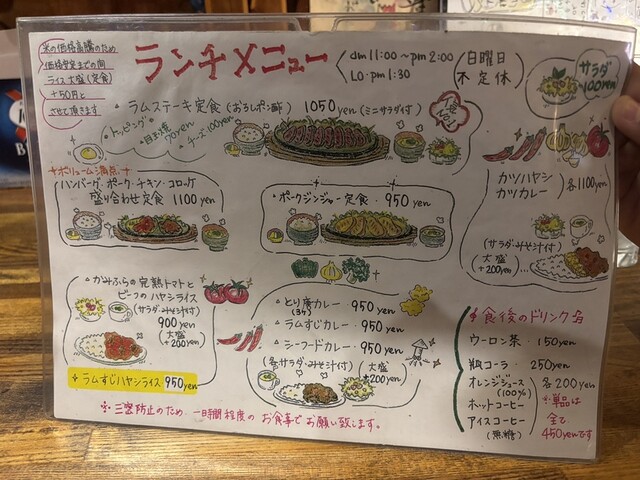 米の価格高騰のため
価格安定までの間
ライス大盛(定食)
+50円と
させて頂きます
ランチメニュー
am11:00~pm2:00
LO・pm1:30
日曜日
不定休
サラダ
100yen
ラムステーキ定食(おろしポン酢) 1050yen(ミニサラダ付)
トッピング
目玉焼 70yen
チーズ100yen
ボリューム満点
ハンバーグ・ポーク・チキン・コロッケ
盛り合わせ定食 1100yen
ポークジンジャー定食・950yen
カツハヤシ
カツカレー
各1100yen
(サラダみそ汁付)
(大盛
+200yen)
かみふらの完熟トマトと
ビーフのハヤシライス
(サラダみそ汁付)
900yen
(大盛
+200yen)
ラムすじハヤシライス 950yen
とり唐カレー・950yen
(3ケ)
ラムすじカレー・950yen
シーフードカレー・950yen
(各サラダ・みそ汁付)
(大盛
+200yen)
食後のドリンク
ウーロン茶・150yen
瓶コーラ・250yen
オレンジジュース
(100%)
ホットコーヒー
アイスコーヒー
(無糖)
各200yen
※単品は
全て
450yenです
※三密防止のため一時間程度のお食事でお願い致します。